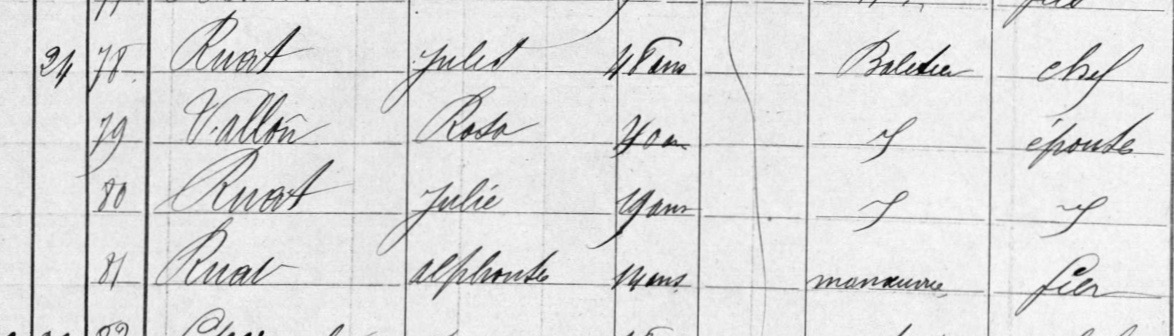 24 78 Ruat Jules 48 ans chef
79 Vallon Rosa 40 an épouse
80 Ruat Julie 19 ans
81 Ruat alphonse 14 ans manœuvre